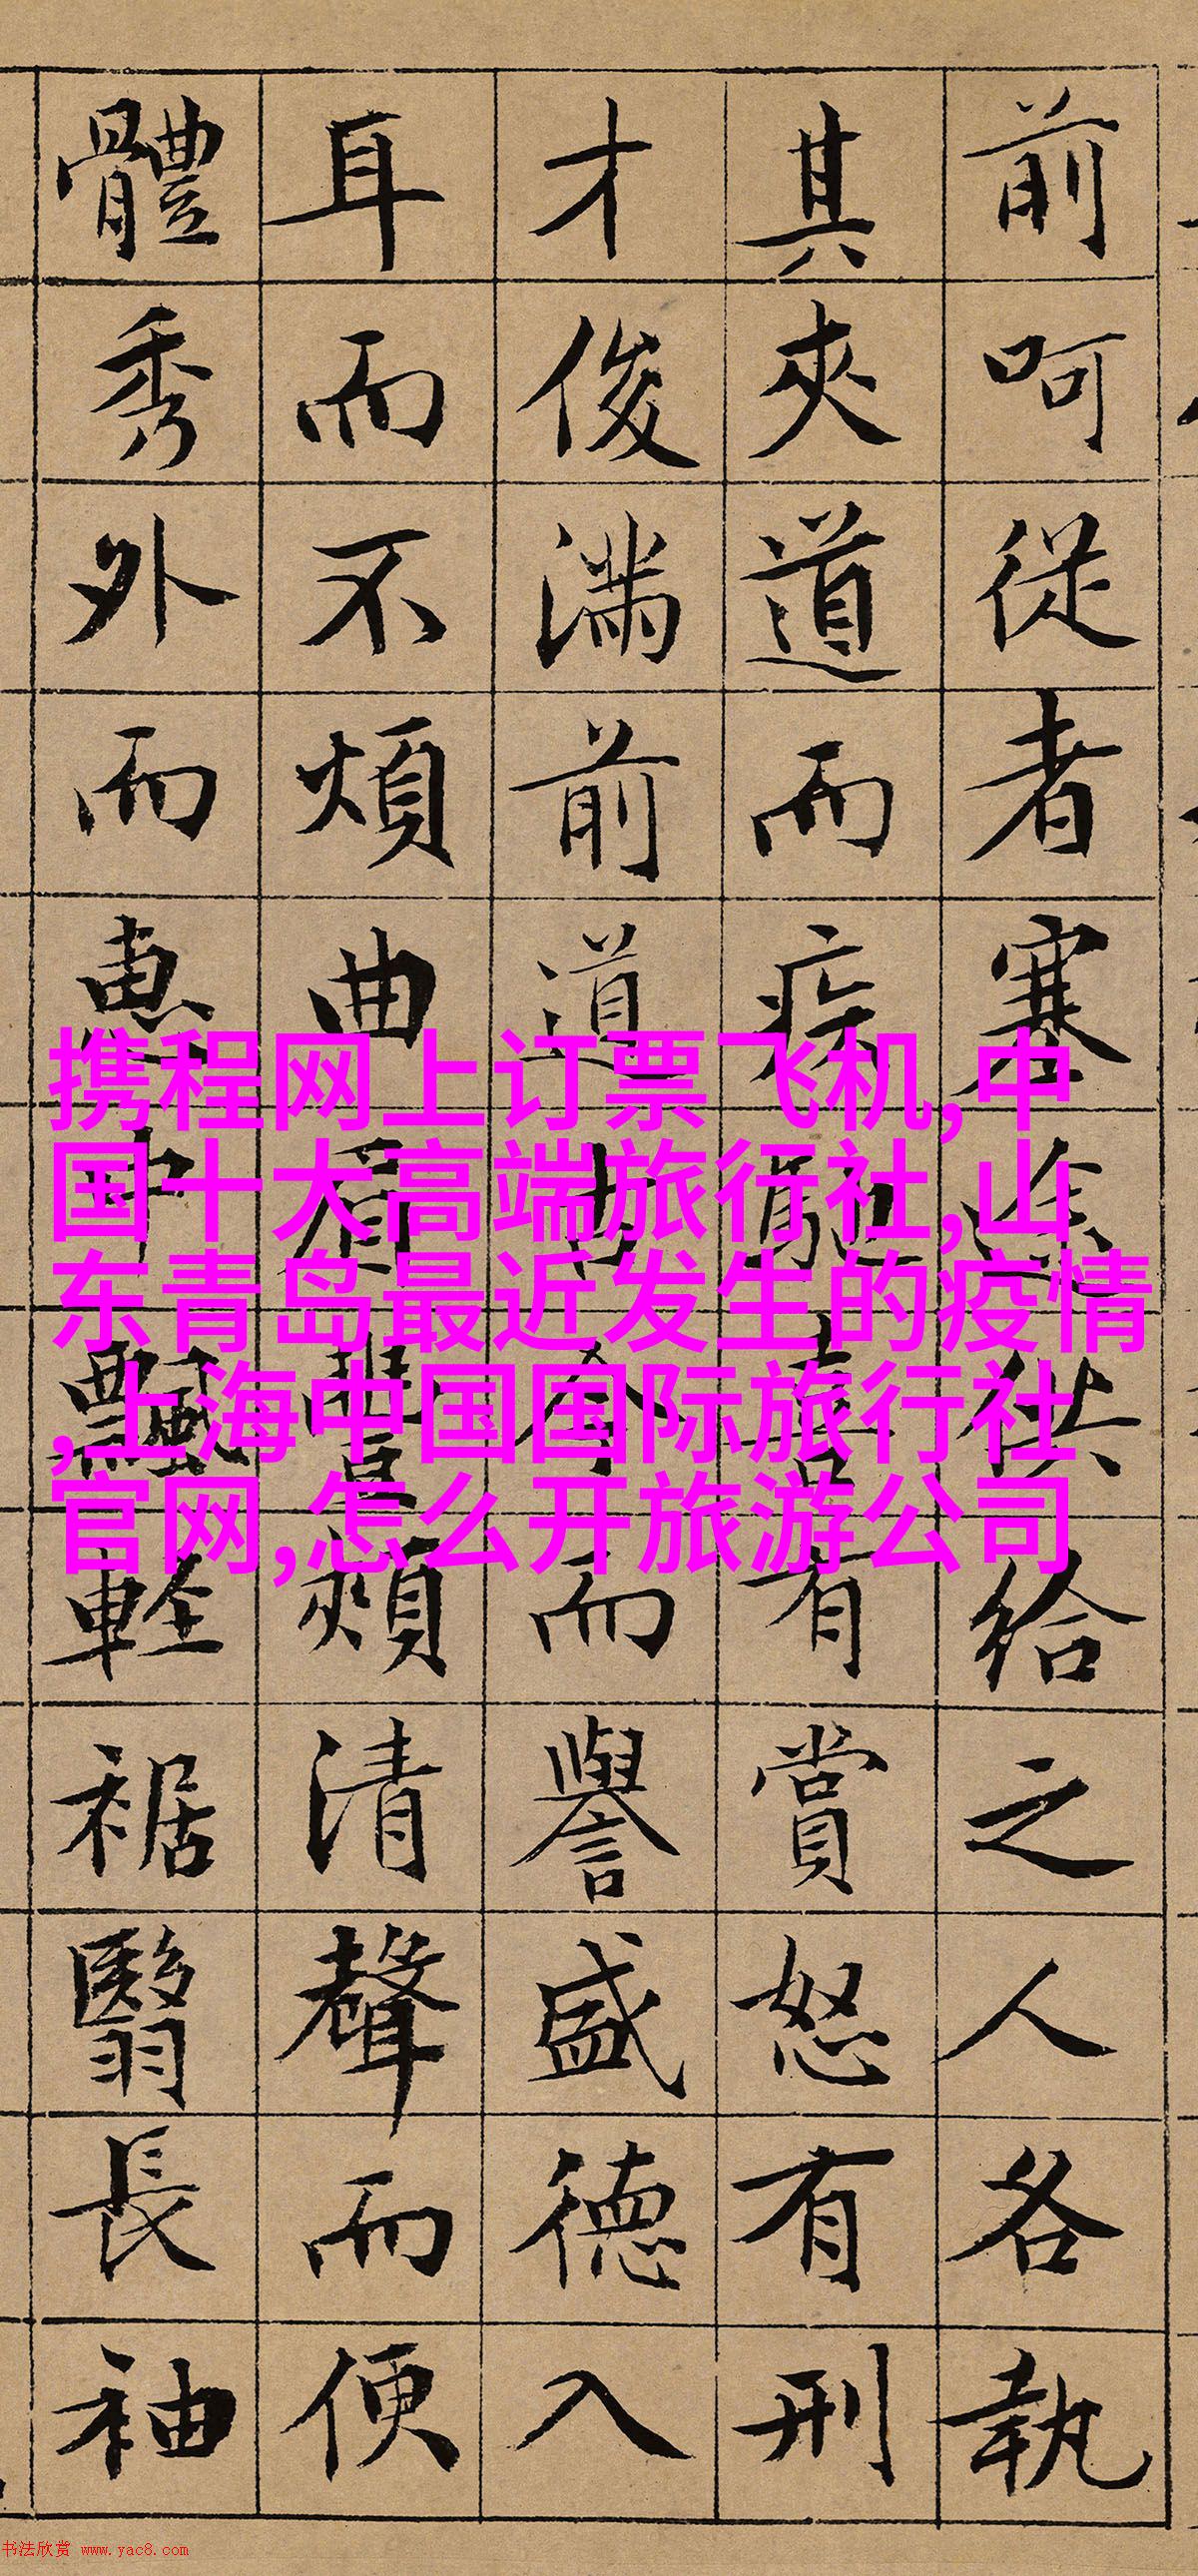 前呵從者塞途供給之人各執
其夾道而疾馳喜有賞怒有刑
才俊滿前道古今而譽盛德入
耳而不煩曲眉豐頰清聲而便
體秀外而惠中飄輕裾翳長袖
携程网上订票飞机,中
国十大高端旅行社,山
东青岛最近发生的疫情
,上海中国国际旅行社
官网,怎么开旅游公司
书法欣赏 www.yac8.com